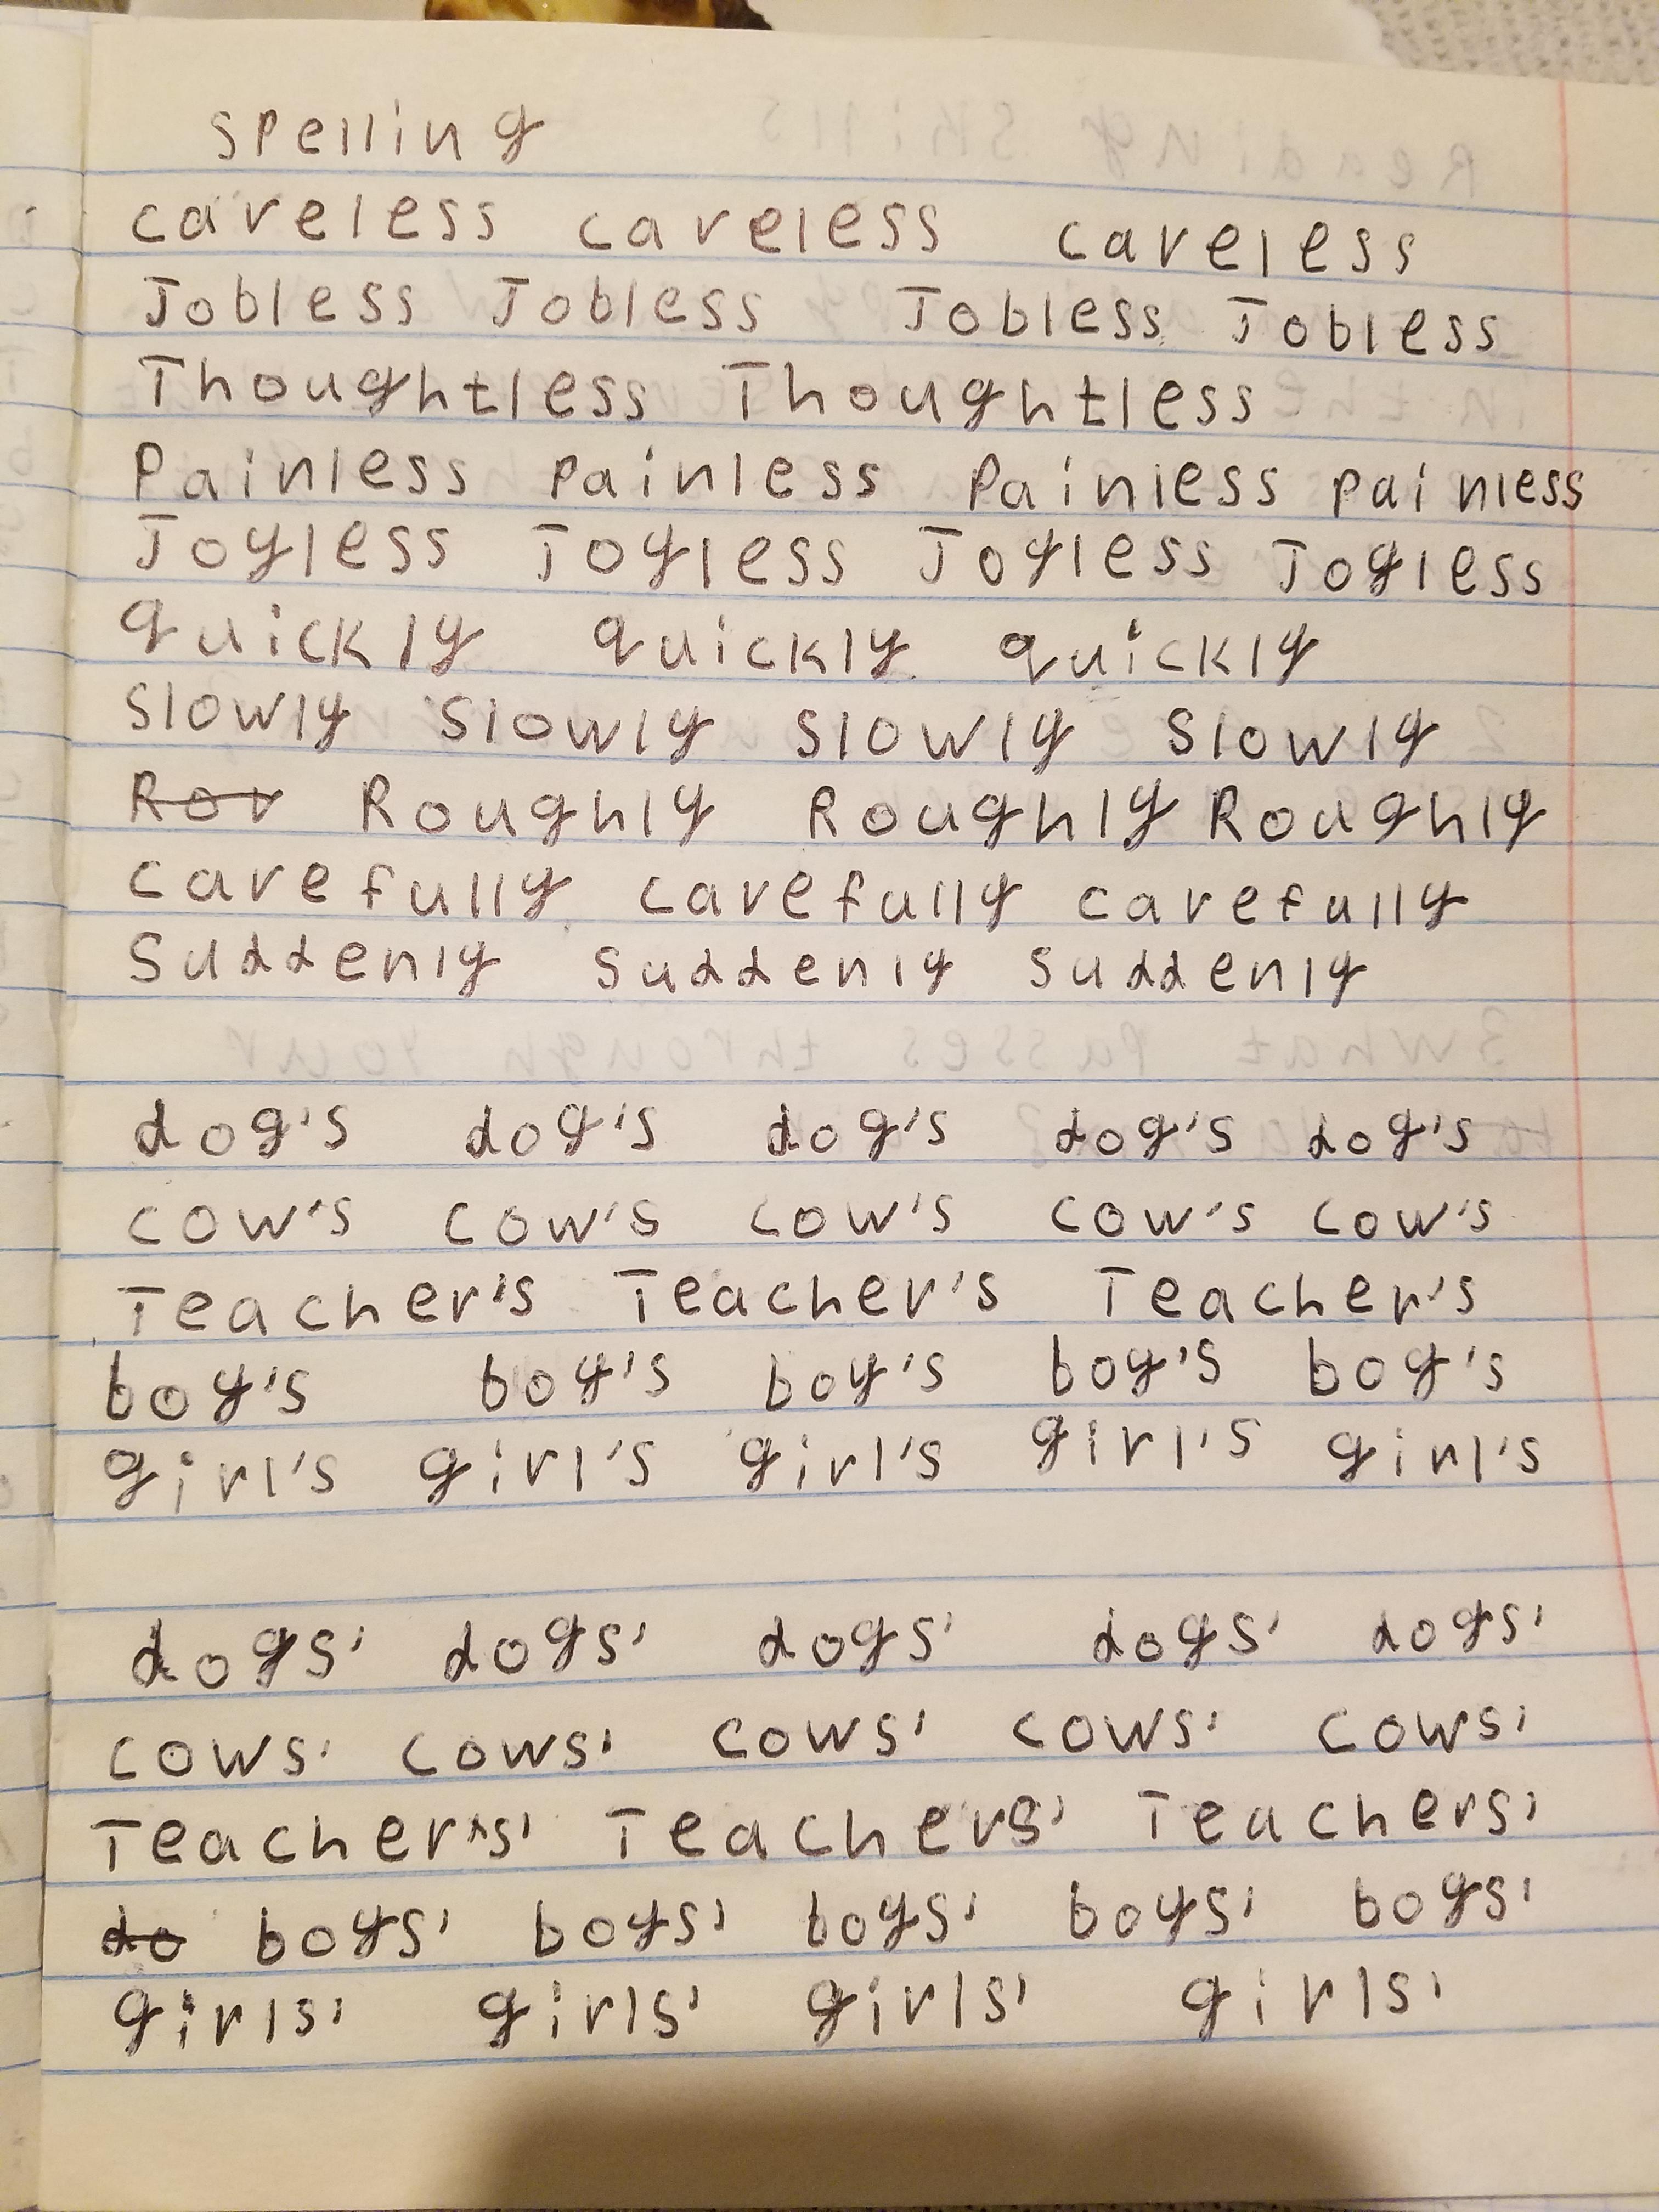 spelling
careless careless careless
Jobless Jobless Jobless Jobless
Thoughtless Thoughtless
Painless painless Painless painless
Joyless Joyless Joyless Joyless
quickly quickly quickly
Slowly Slowly Slowly Slowly
Ror Roughly Roughly Roughly
carefully carefully carefully
Suddenly Suddenly suddenly
dog's dog's dog's dog's dog's
cow's cow's cow's cow's cow's
Teacher's Teacher's Teacher's
boy's boy's boy's boy's boy's
girl's girl's girl's girl's girl's
dogs' dogs' dogs' dogs' dogs'
cows' cows' cows' cows' cows'
Teachers' Teachers' Teachers'
do boys' boys' boys' boys' boys'
girls' girls' girls' girls'